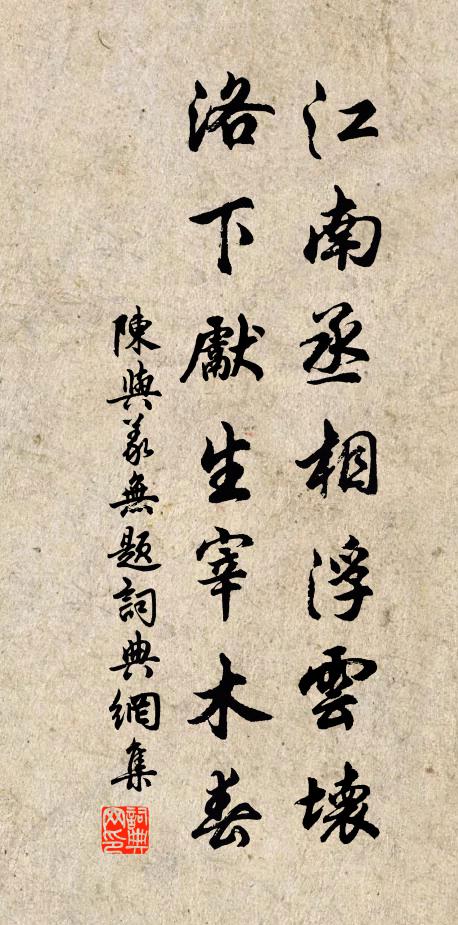 江南丞相浮雲壞
洛下獻生宰木春
陳與義無題詞典網集
詞典网印